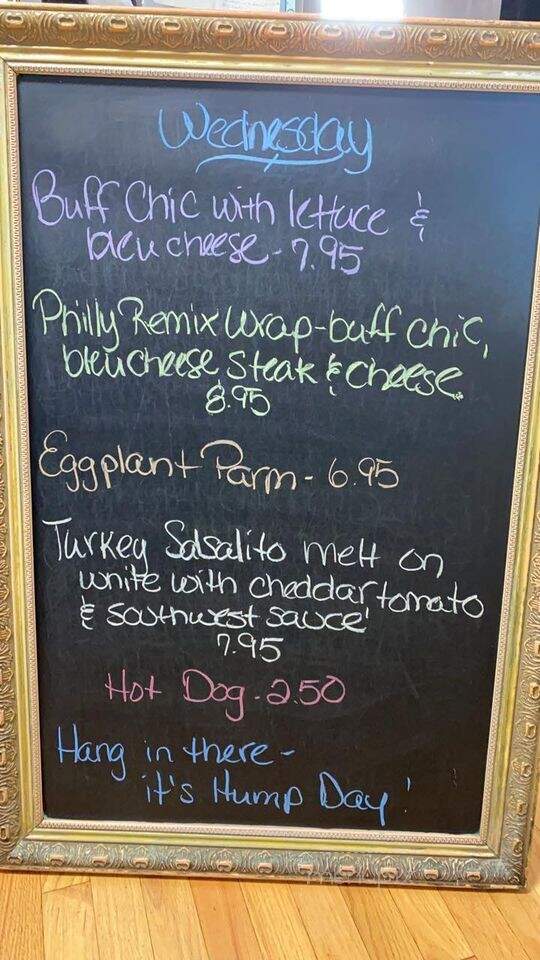 Wednesday
Buff Chic with lettuce &
bleu cheese - 7.95
Philly Remix Wrap - buff chic,
bleu cheese steak & cheese
8.95
Eggplant Parm - 6.95
Turkey Salsalito melt on
white with cheddar tomato
& southwest sauce
7.95
Hot Dog - 2.50
Hang in there -
it's Hump Day!